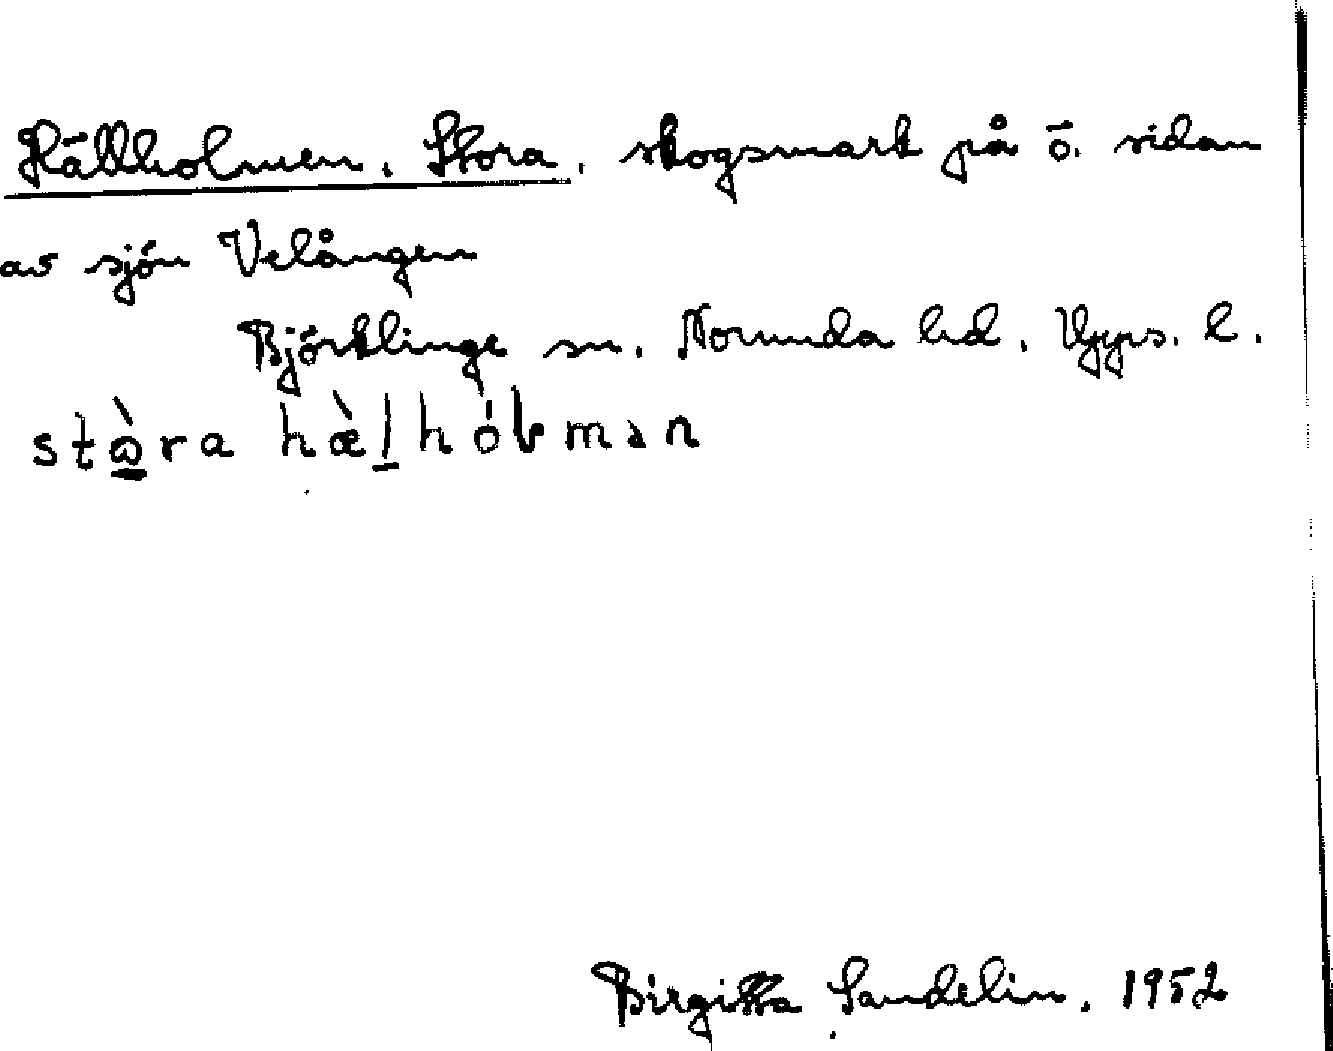 Hällholmen, Stora, skogsmark på ö. sidan
av sjön Velången
Björklinge sn. Norunda hd. Upps. l.
stὼra hæ̀lhólmən
Birgitta Sandelin. 1952